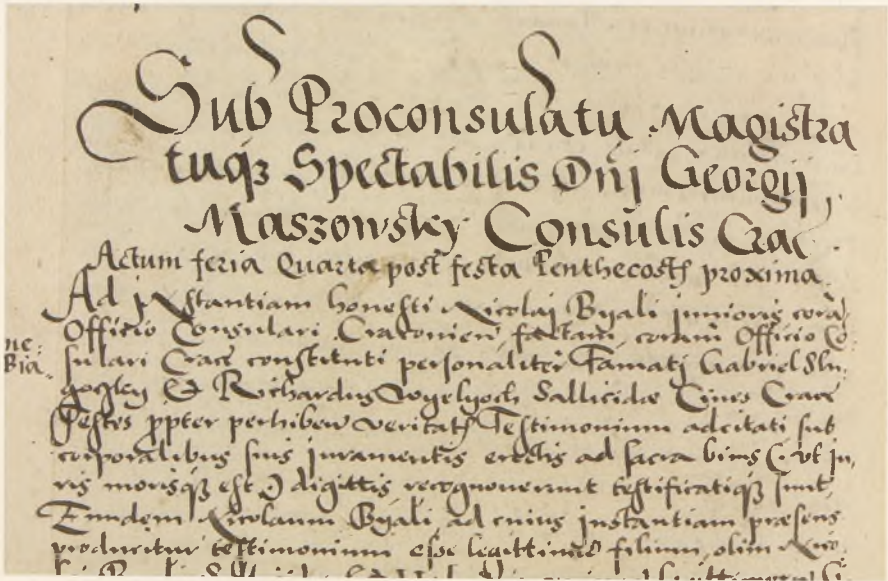 Sub Proconsulatu Magistra
tuqȝ Spectabilis Dnj Georgij
Maszowsky Consulis Crac
Actum feria Quarta post festa Penthecosts proxima
Ad jnstantiam honesti Nicolaj Byali junioris corā
Officio Consulari Cracovien factam, coram Officio Co
ne: sulari Crace constituti personaliter Famatj Gabriel Slu
Bia & Richardus Sallicidæ Cives Crace
Testes ppter perhibend veritats Testimonium adcitati sub
corporalibus suis juramentis erectis ad sacra binis (vt ju
ris morisqȝ est) digittis recognoverunt testificatiqȝ sunt,
Eundem Nicolaum Byali, ad cuius jnstantiam præsens
producitur testimonium esse legittimū filium, olim Nico